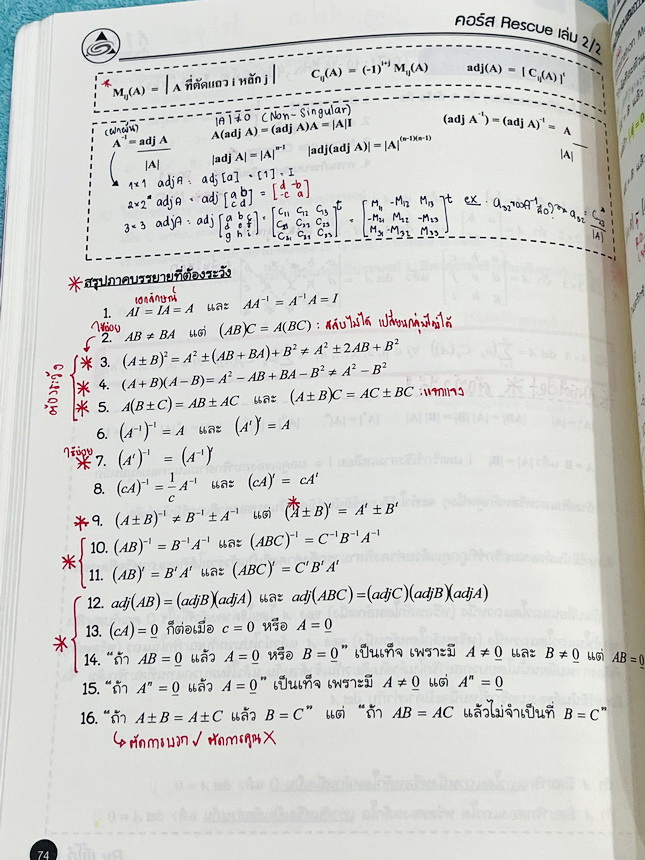 คอร์ส Rescue เล่ม 2/2
* Mij(A) = | A ที่ตัดแถว i หลัก j | Cij(A) = (-1)^(i+j) Mij(A) adj(A) = [ Cij(A) ]^t
|A| ≠ 0 (Non-Singular)
A^-1 = adj A / |A| A(adj A) = (adj A)A = |A|I (adj A^-1) = (adj A)^-1 = A / |A|
|adj A| = |A|^(n-1) |adj(adj A)| = |A|^((n-1)(n-1))
1×1 adj A = adj [a] = [1] = I
2×2 adj A = adj [a b c d] = [d -b -c a]
3×3 adj A = adj [a b c d e f g h i] = [C11 C12 C13 C21 C22 C23 C31 C32 C33]^t = [M11 -M12 M13 -M21 M22 -M23 M31 -M32 M33]^t ex.
* สรุปภาคบรรยายที่ต้องระวัง
เอกลักษณ์
1. AI = IA = A และ AA^-1 = A^-1A = I
ใช้บ่อย
2. AB ≠ BA แต่ (AB)C = A(BC) : สลับไม่ได้ เปลี่ยนกลุ่มได้
ต้องระวัง
* 3. (A ± B)^2 = A^2 ± (AB + BA) + B^2 ≠ A^2 ± 2AB + B^2
* 4. (A + B)(A − B) = A^2 − AB + BA − B^2 ≠ A^2 − B^2
* 5. A(B ± C) = AB ± AC และ (A ± B)C = AC ± BC : แจกแจง
6. (A^-1)^-1 = A และ (A^t)^t = A
ใช้บ่อย
* 7. (A^t)^-1 = (A^-1)^t
8. (cA)^-1 = 1/c A^-1 และ (cA)^t = cA^t
* 9. (A ± B)^-1 ≠ B^-1 ± A^-1 แต่ * (A ± B)^t = A^t ± B^t
* 10. (AB)^-1 = B^-1A^-1 และ (ABC)^-1 = C^-1B^-1A^-1
11. (AB)^t = B^tA^t และ (ABC)^t = C^tB^tA^t
* 12. adj(AB) = (adjB)(adjA) และ adj(ABC) = (adjC)(adjB)(adjA)
13. (cA) = 0 ก็ต่อเมื่อ c = 0 หรือ A = 0
14. “ถ้า AB = 0 แล้ว A = 0 หรือ B = 0” เป็นเท็จ เพราะมี A ≠ 0 และ B ≠ 0 แต่ AB = 0
15. “ถ้า A^n = 0 แล้ว A = 0” เป็นเท็จ เพราะมี A ≠ 0 แต่ A^n = 0
16. “ถ้า A ± B = A ± C แล้ว B = C” แต่ “ถ้า AB = AC แล้วไม่จำเป็นที่ B = C”
↳ ตัดการบวก ✓ ตัดการคูณ X
74